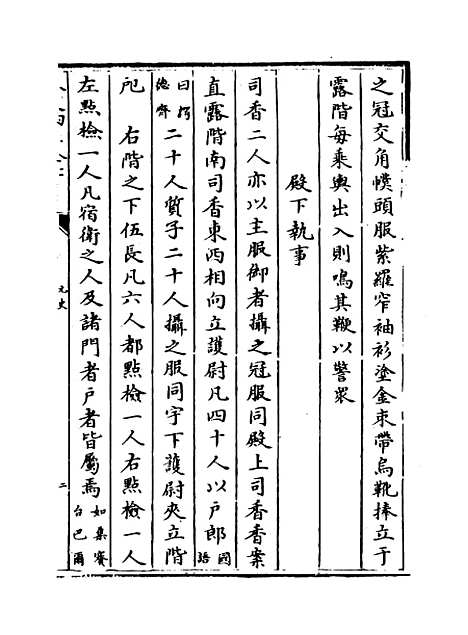 之冠交角幞頭服紫羅窄袖衫塗金束帶烏靴捧立于
露階每乘輿出入則鳴其鞭以警衆
殿下執事
司香二人亦以主服御者攝之冠服同殿上司香香案
直露階南司香東西相向立護尉凡四十人以戶郎國語
曰德齊二十人質子二十人攝之服同宇下護尉夾立階
戺 右階之下伍長凡六人都點檢一人右點檢一人
左點檢一人凡宿衛之人及諸門者戶者皆屬焉如集賽台巴爾
元史
二